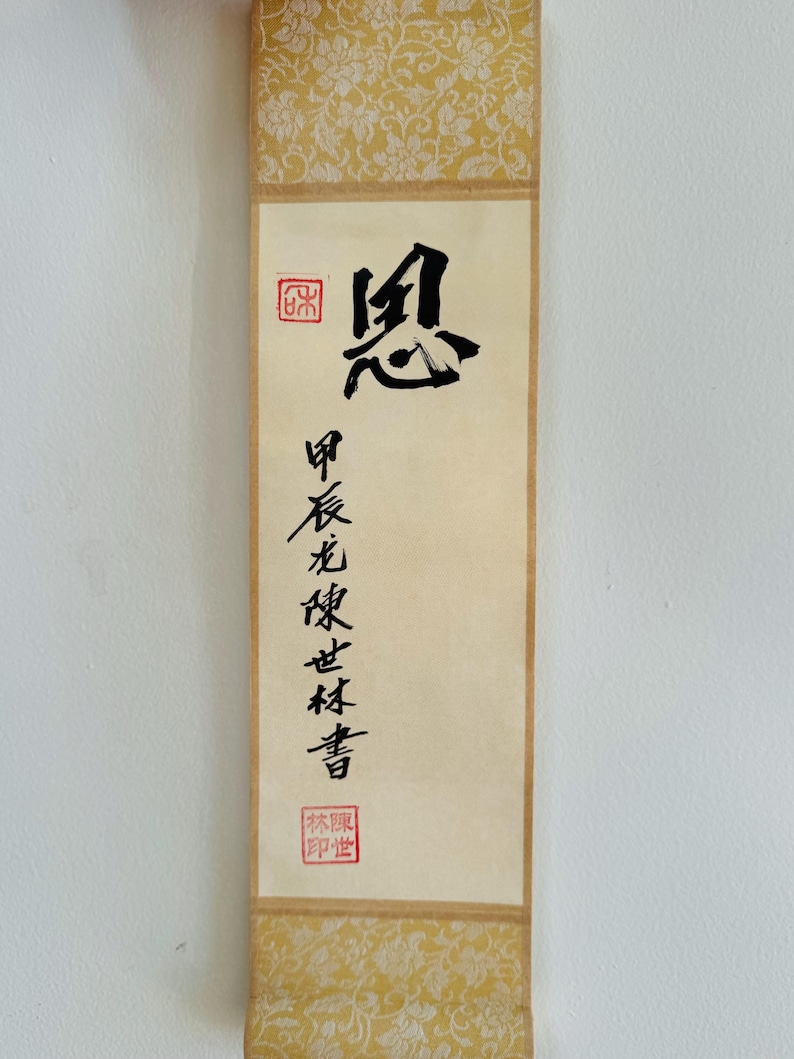 恩
和
甲辰龙陳世林書
陳世
林印